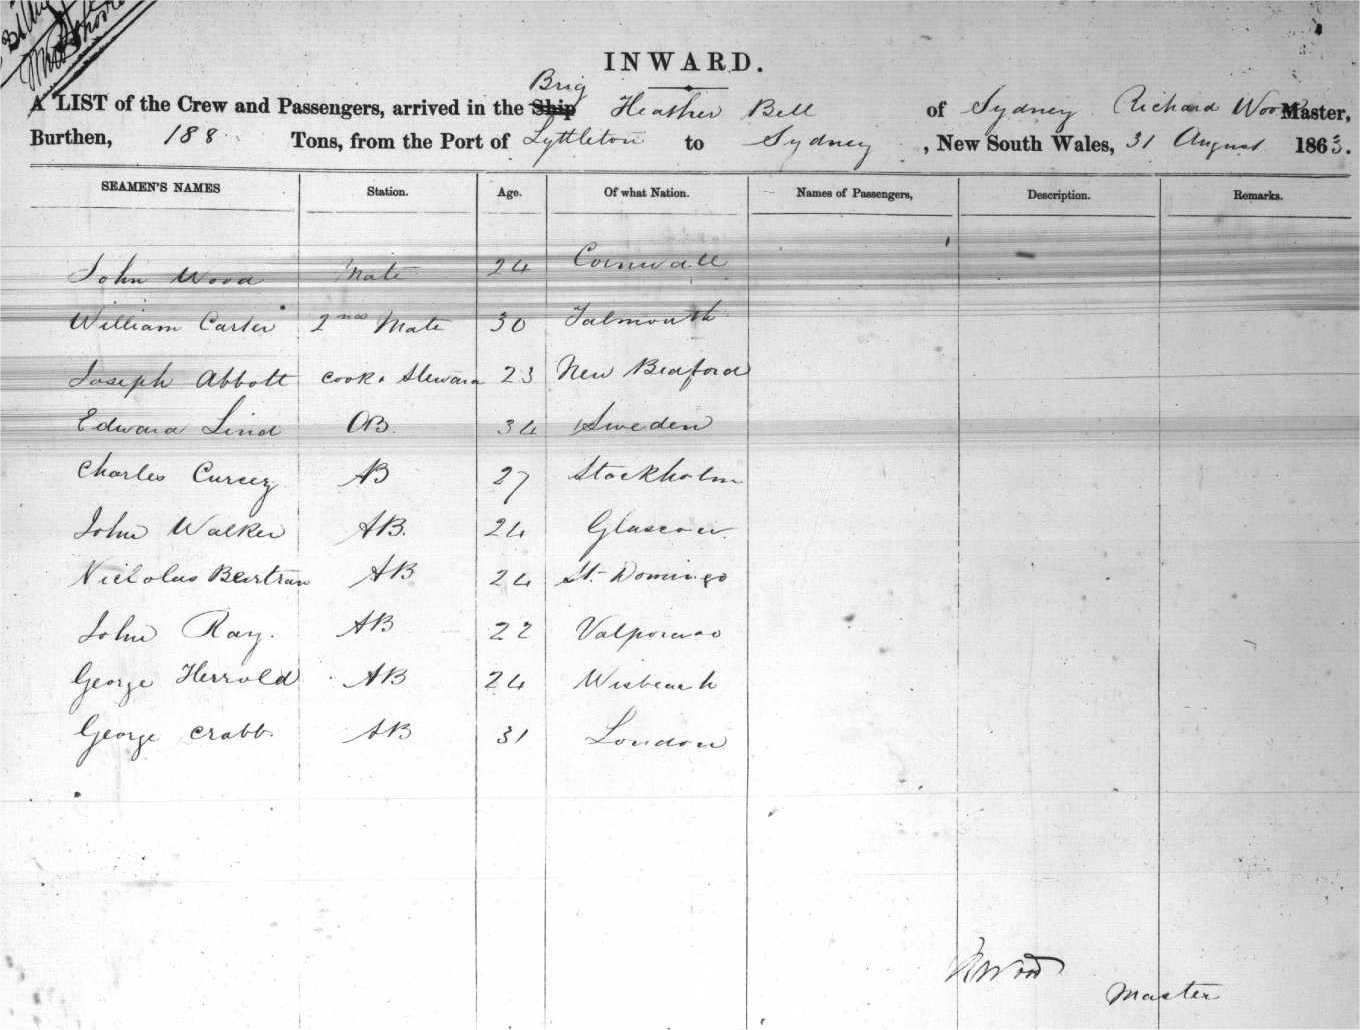 31 Aug
INWARD.
Brig
A LIST of the Crew and Passengers, arrived in the Ship Heather Bell of Sydney Richard Wood Master,
Burthen, 188 Tons, from the Port of Lyttleton to Sydney, New South Wales, 31 August 1863.
SEAMEN'S NAMES Station. Age. Of what Nation. Names of Passengers, Description. Remarks.
John Wood Mate 24 Cornwall
William Carter 2nd Mate 30 Falmouth
Joseph Abbott Cook & Steward 23 New Bedford
Edward Lind OB. 34 Sweden
Charles AB 27 Stockholm
John Walker AB. 24 Glascow
Nicholas Bertran AB 24 St. Domingo
John Ray. AB 22 Valporaso
George Herrold AB 24 Wisbeach
George Crabb. AB 31 London
R Wood
Master